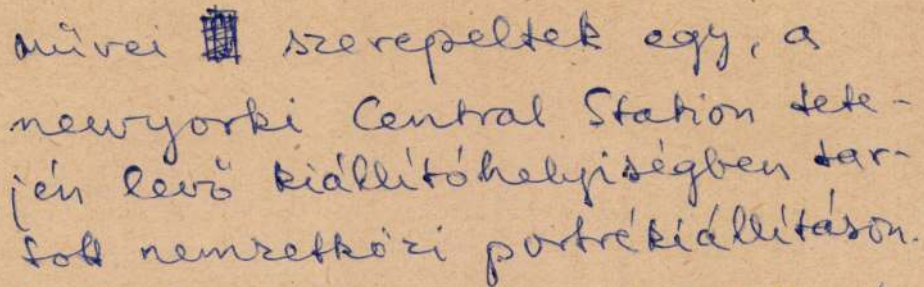 művei szerepeltek egy, a
newyorki Central Station tete-
jén levő kiállítóhelyiségben tar-
tott nemzetközi portrékiállításon.